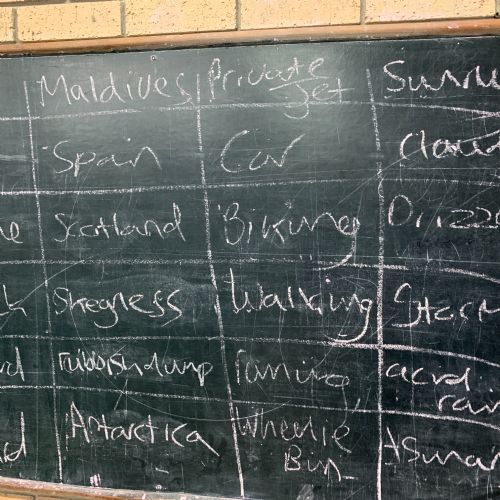 Maldives Private Sunn
Jet
Spain Car Cloud
Scotland Biking Drizz
Skegness Walking Storm
rubbish dump acid
rain
Antarctica Wheelie Tsunam
Bin